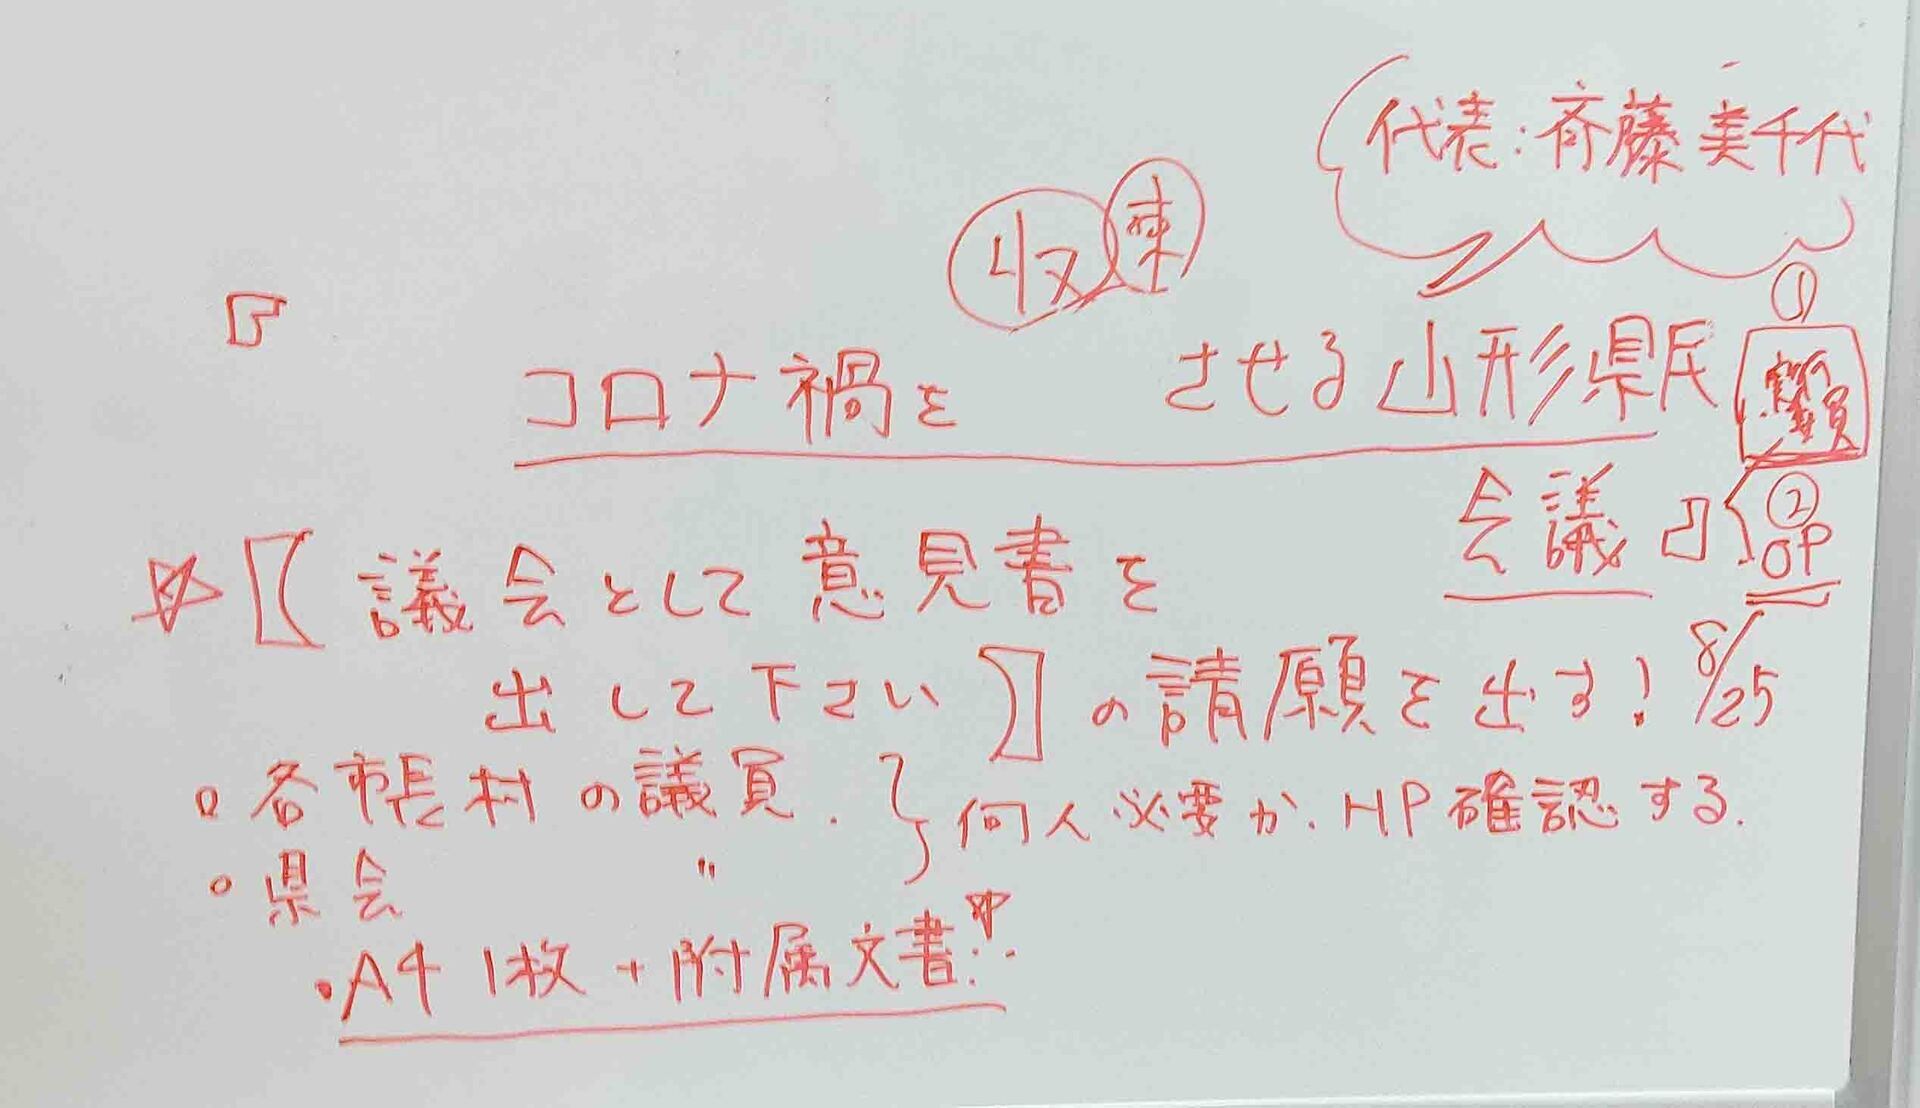 代表:斉藤美千代
収束
『
コロナ禍を させる山形県民
①
会議』
②
OP
☆【議会として意見書を
出して下さい】の請願を出す! 8/25
○各市長村の議員.
何人必要か.HP確認する.
○県会 〃
・A4 1枚+附属文書